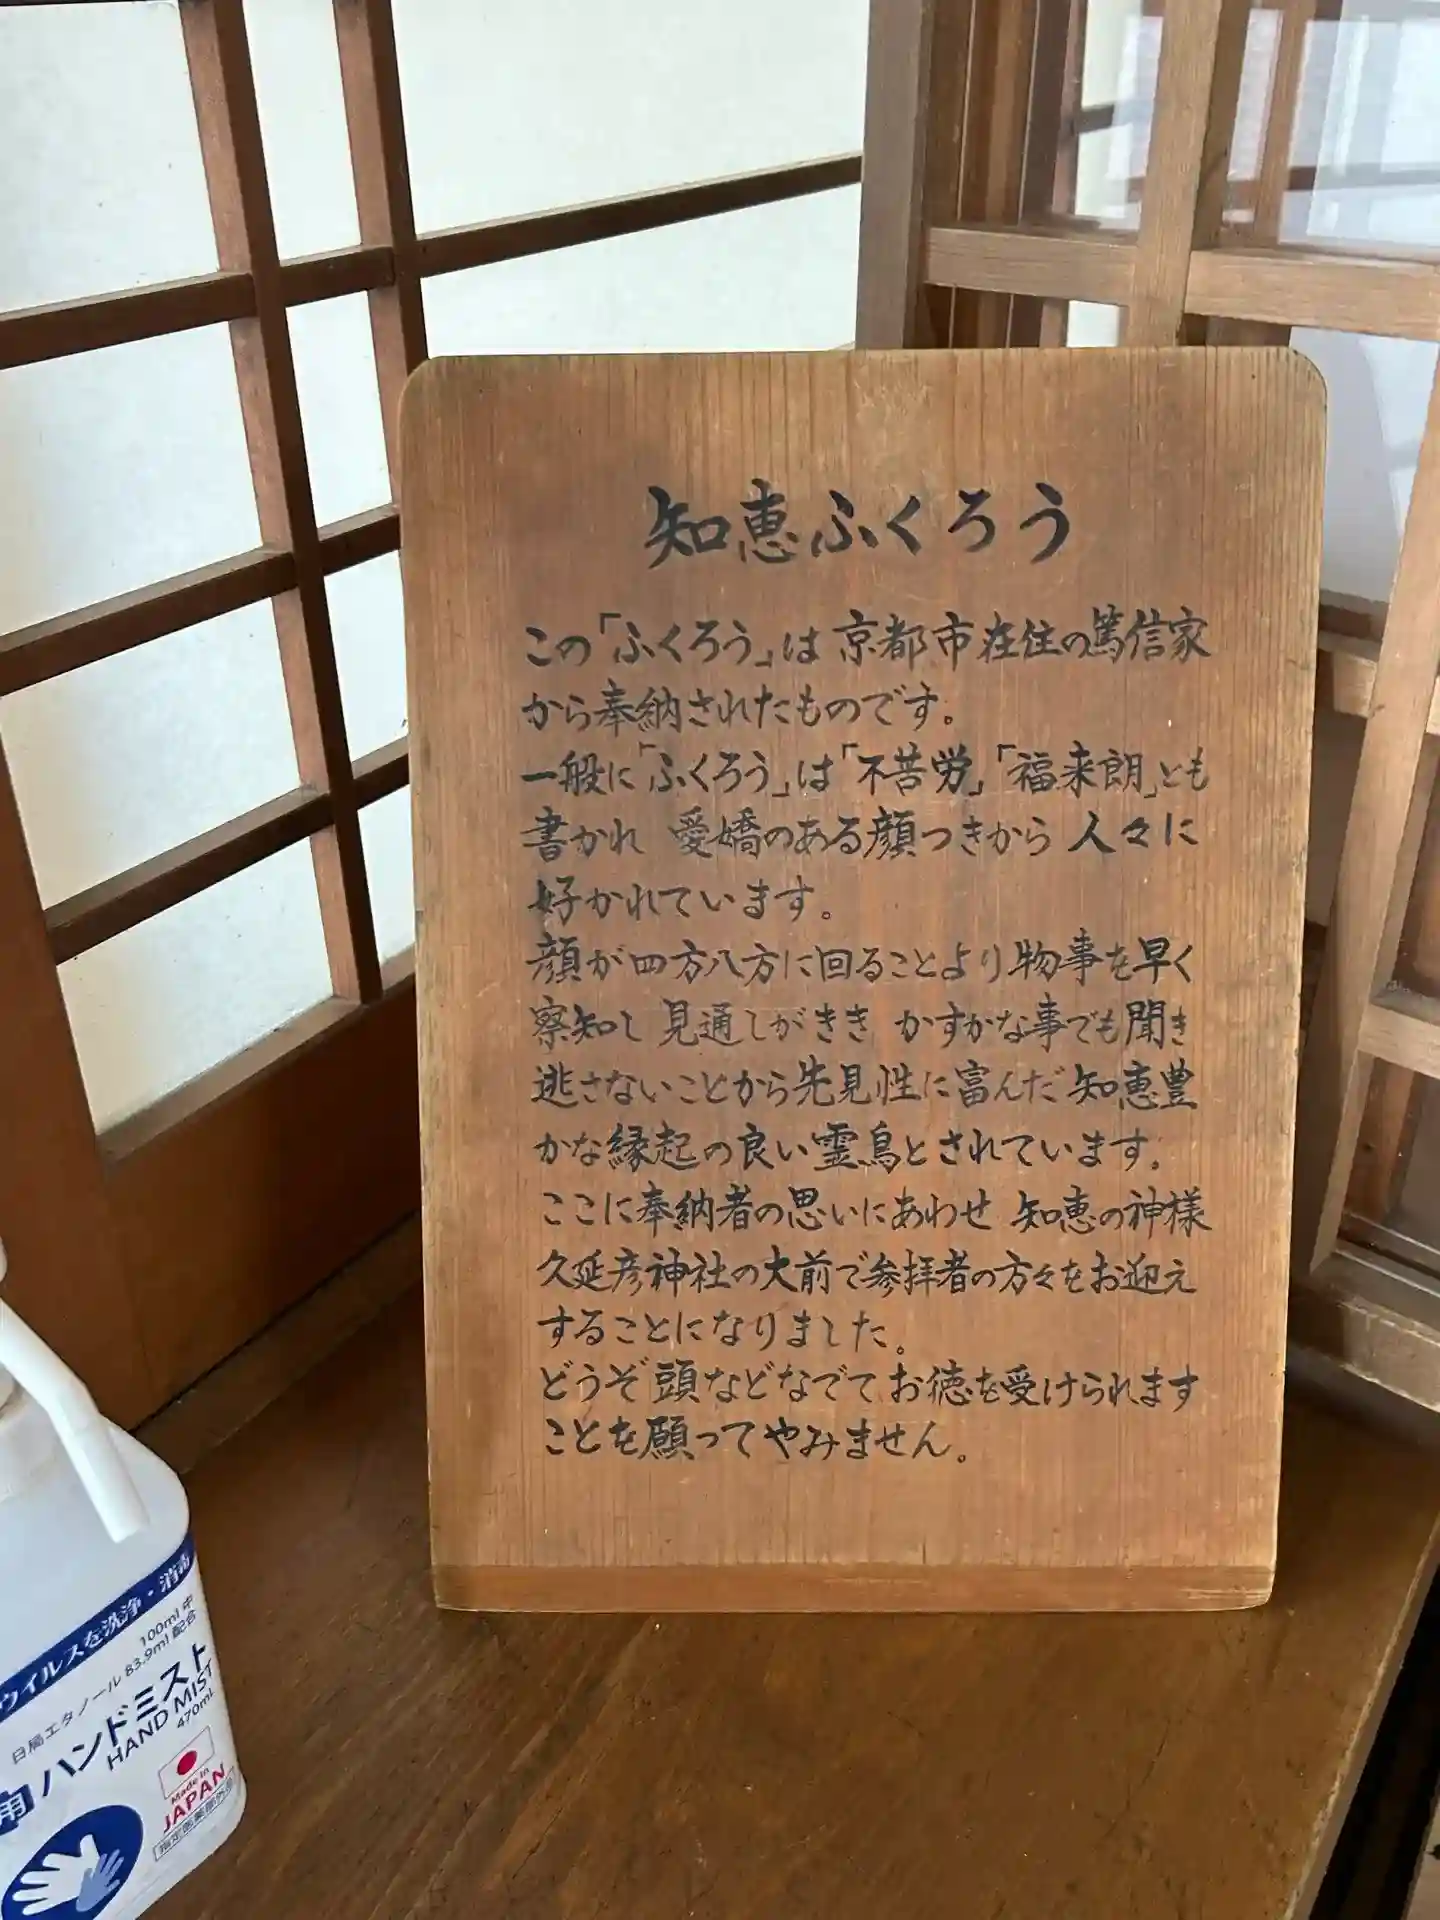 知恵ふくろう
この「ふくろう」は 京都市在住の篤信家
から奉納されたものです。
一般に「ふくろう」は「不苦労」「福来朗」とも
書かれ 愛嬌のある顔つきから 人々に
好かれています。
顔が四方八方に回ることより物事を早く
察知し 見通しがきき かすかな事でも聞き
逃さないことから先見性に富んだ知恵豊
かな縁起の良い霊鳥とされています。
ここに奉納者の思いにあわせ 知恵の神様
久延彦神社の大前で参拝者の方々をお迎え
することになりました。
どうぞ頭などなでてお徳を受けられます
ことを願ってやみません。
ウイルスを洗浄・消毒
100ml中
日局エタノール83.9ml配合
用 ハンドミスト
HAND MIST
470mL
Made in
JAPAN
指定医薬部外品